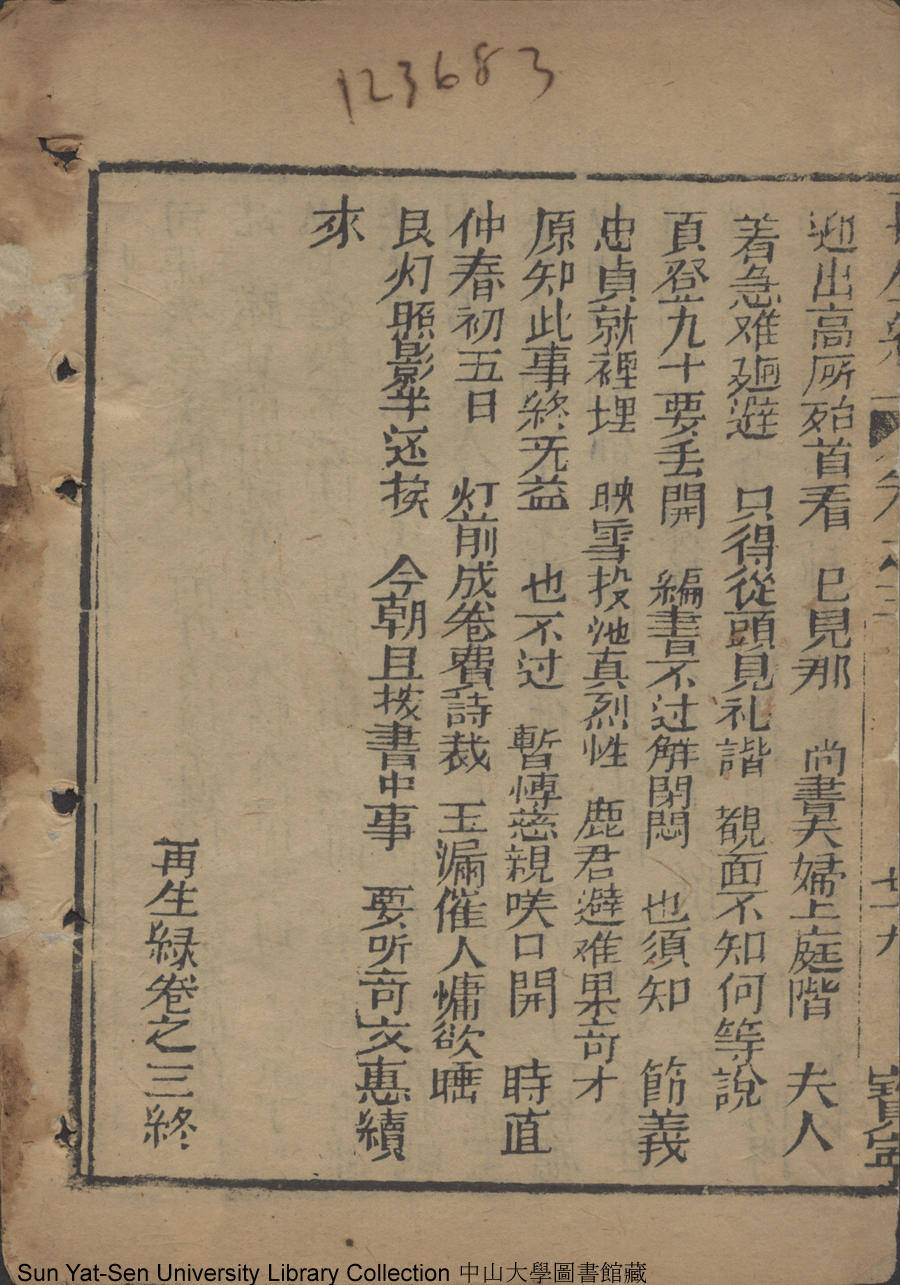 123683
迎出高所殆首看　已見那　尚書夫婦上庭階　夫人
着急难廻避　只得從頭見礼諧　覩面不知何等說
頁登九十要丢開　編書不过觧閉悶　也須知　節義
忠貞就裡埋　映雪投池真烈性　鹿君避难果奇才
原知此事終无益　也不过　暫博慈親咲口開　時直
仲春初五日　灯前成卷費詩裁　玉漏催人慵欲睡
艮灯照影半还挨　今朝且按書中事　要听奇文惠續
來
再生緣卷之三終
Sun Yat-Sen University Library Collection 中山大學圖書館藏